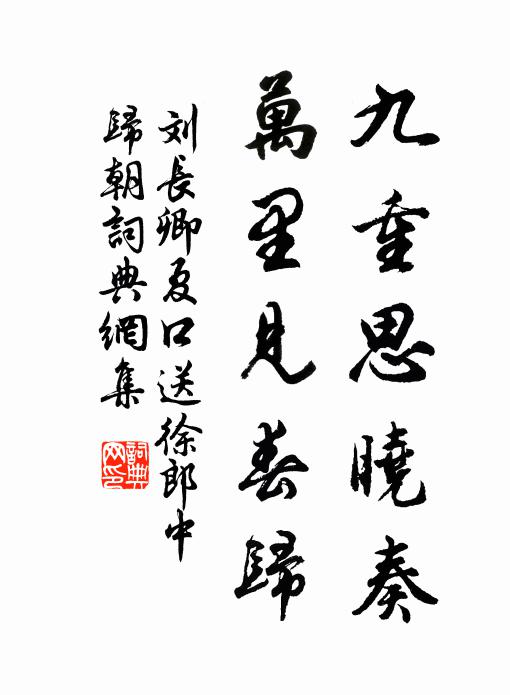 九重思曉奏
萬里見春歸
刘長卿夏口送徐郎中
歸朝詞典網集
詞典
网印